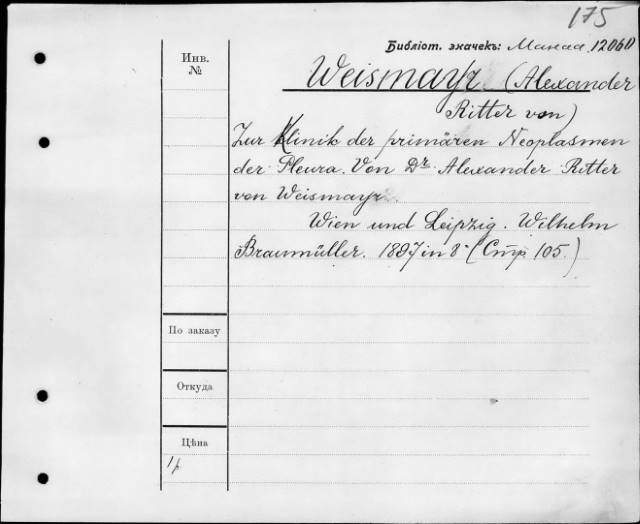 175
Библіот. значекъ: Манас. 12060
Инв.
№
Weismayr (Alexander
Ritter von)
Zur Klinik der primären Neoplasmen
der Pleura. Von Dr Alexander Ritter
von Weismayr.
Wien und Leipzig. Wilhelm
Braumüller. 1897 in 8° (Стр 105.)
По заказу
Откуда
Цѣна